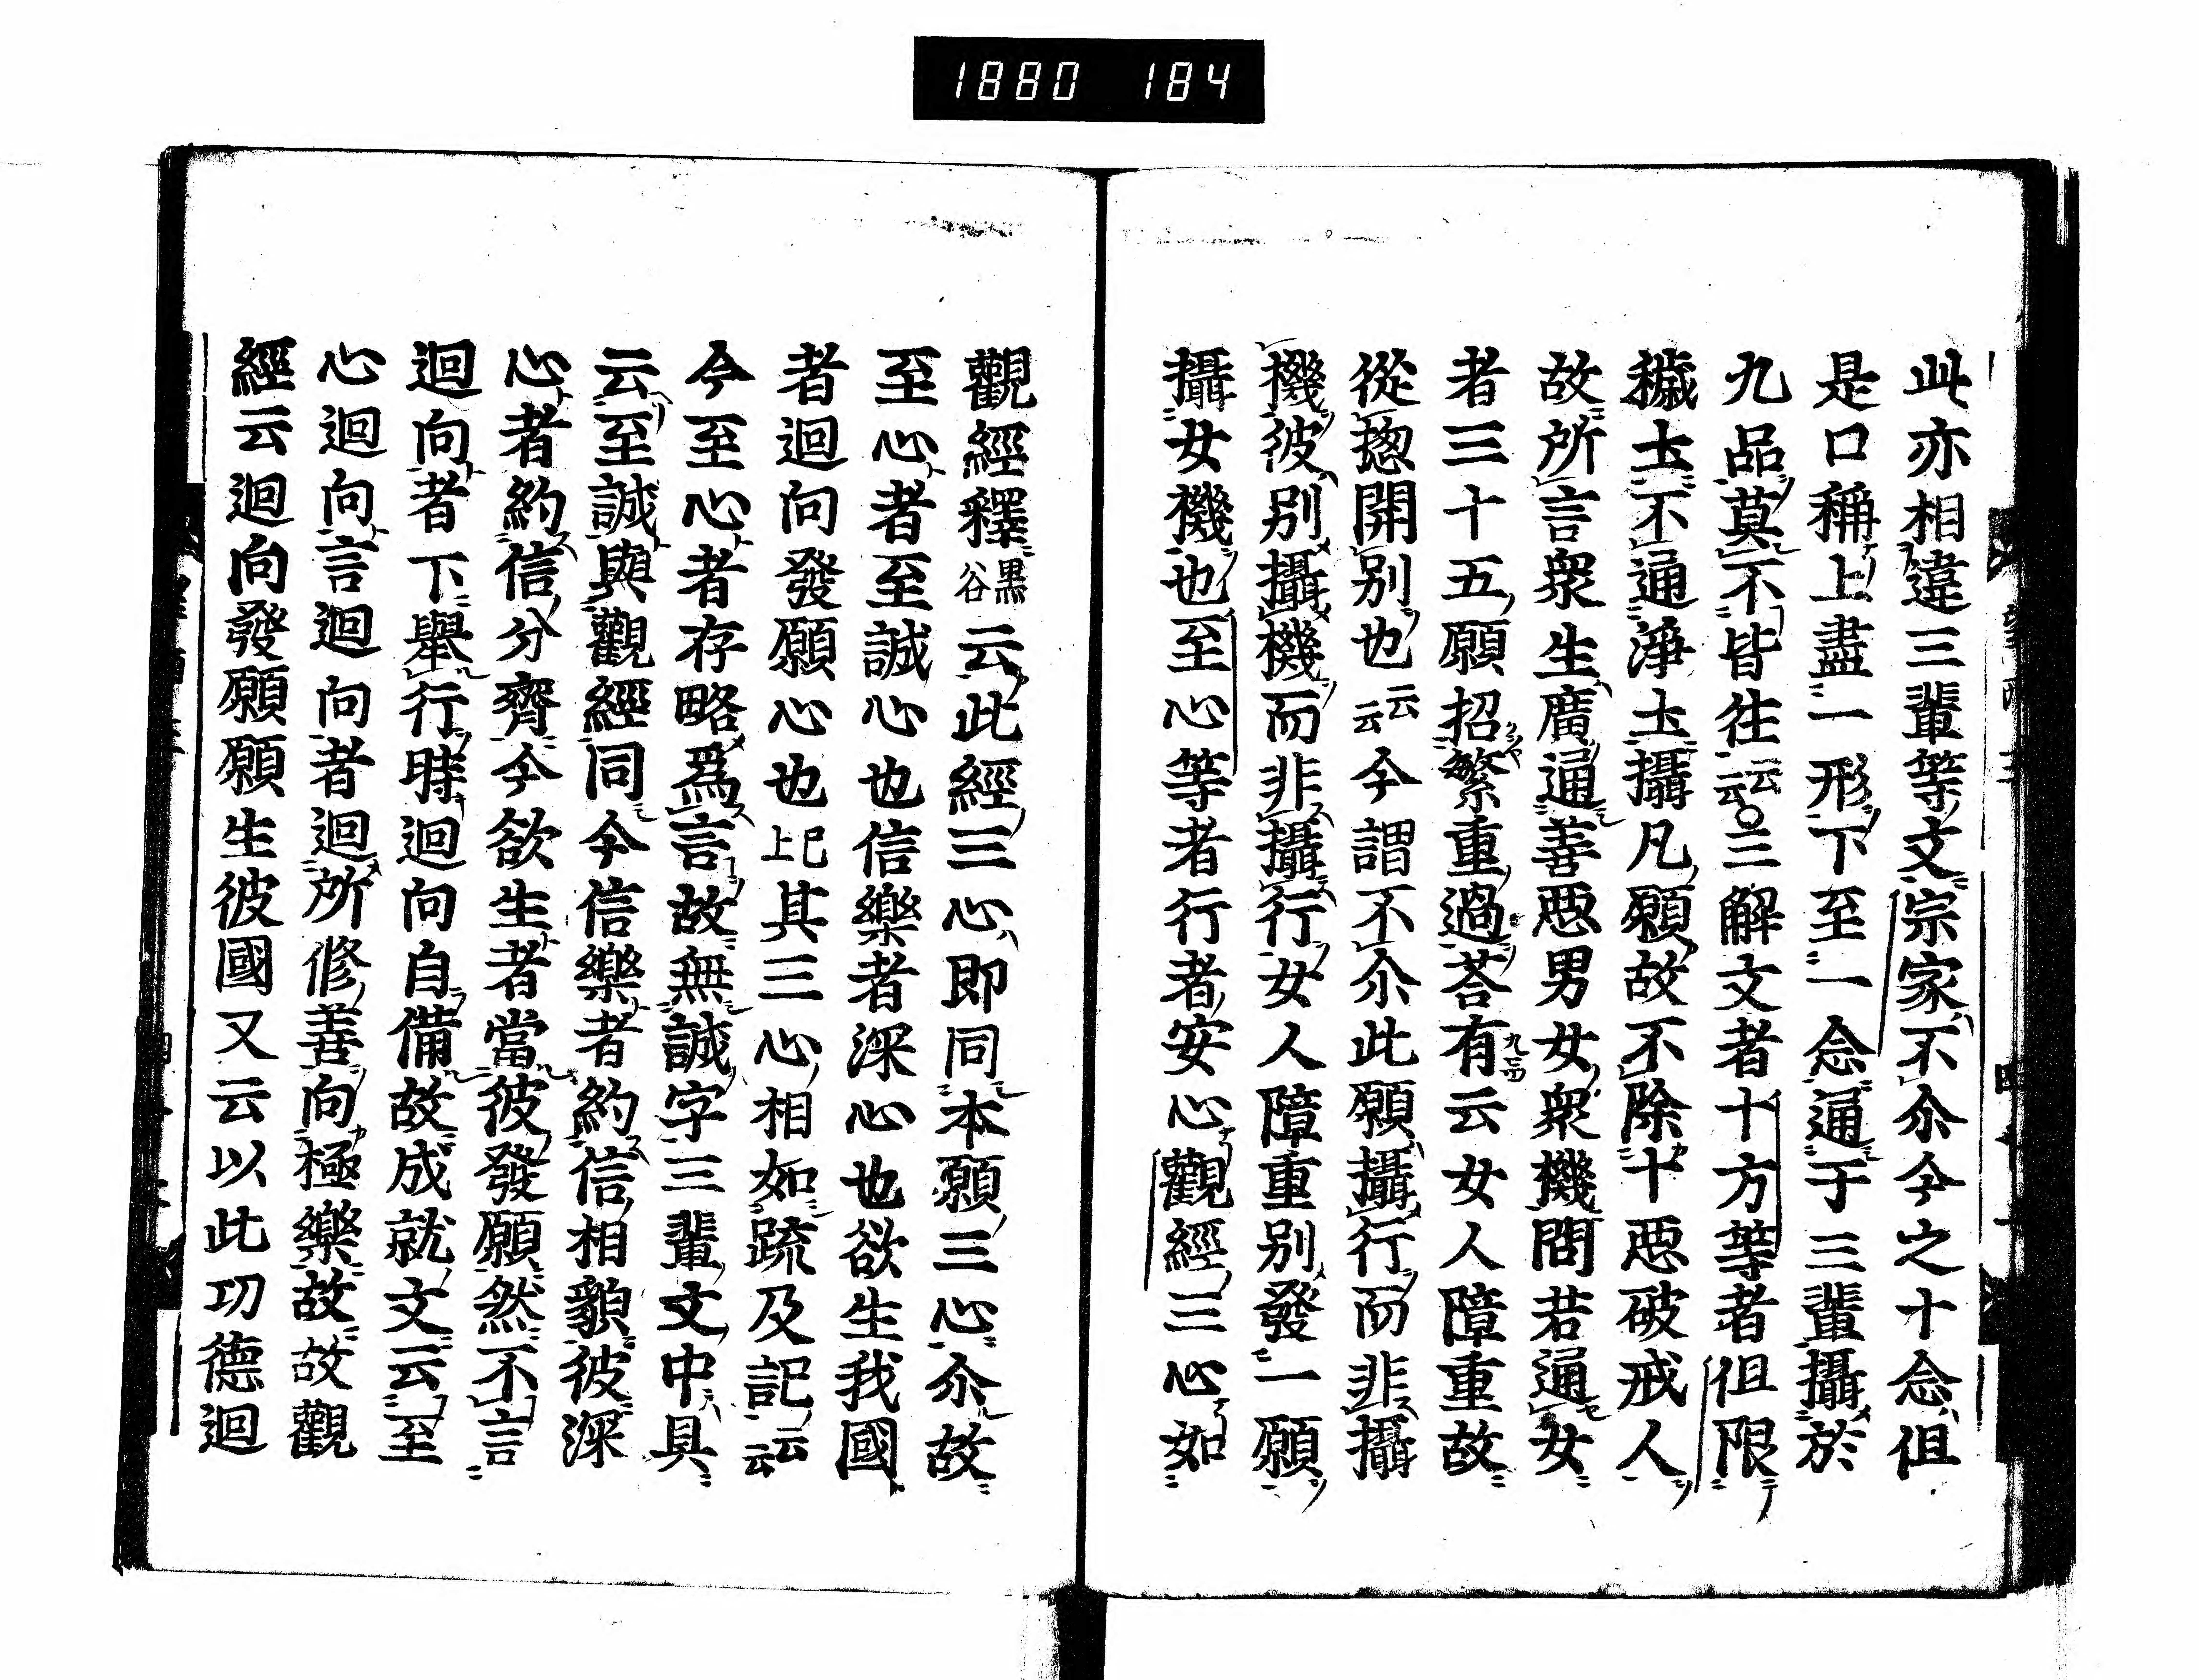 1880 184
此亦相違三輩等文宗家不尒今之十念但
是口稱上盡一形下至一念通于三輩攝於
九品莫不皆往云云○三解文者十方等者但限
穢土不通淨土攝凡願故不除十惡破戒人
故所言衆生廣通善惡男女衆機問若通女
者三十五願招繁重過荅有九ニ云女人障重故
從揔開別也云云今謂不尒此願攝行而非攝
機彼別攝機而非攝行女人障重別發一願
攝女機也至心等者行者安心觀經三心如
觀經釋黒谷云此經三心即同本願三心尒故
至心者至誠心也信樂者深心也欲生我國
者迴向發願心也已上其三心相如疏及記云云
今至心者存略爲言故無誠字三輩文中具
云至誠與觀經同今信樂者約信相貌彼深
心者約信分齊今欲生者當彼發願然不言
迴向者下舉行時迴向自備故成就文云至
心迴向言迴向者迴所修善向極樂故故觀
經云迴向發願願生彼國又云以此功德迴